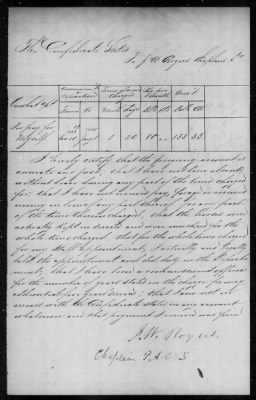 The Confederate States
To J. W. Rogers Chaplain Dr
Commencement & Termination
Term of Service Charged
Pay per Month
Am't
From to Months Days Dols Cts Dols Cts
For pay for
Myself
1 20 80 133 33
I hereby certify that the foregoing account is
accurate and just; that I have not been absent
without leave during any part of the time charged
for; that I have not received pay, forage or received
money in lieu of any part thereof, for any part
of the time therein charged; that the horses were
actually kept in service and were mustered for the
whole time charged; that for the whole time charged
for my staff appointment, I actually and legally
held the appointment and did duty in the depart
ment; that I have been a commissioned officer
for the number of years stated in the charge for any
additional for years served; that I am not in
arrears with the Confederate States on any account
whatsoever and that
J. W. Rogers
Chaplain P.A.C.S.